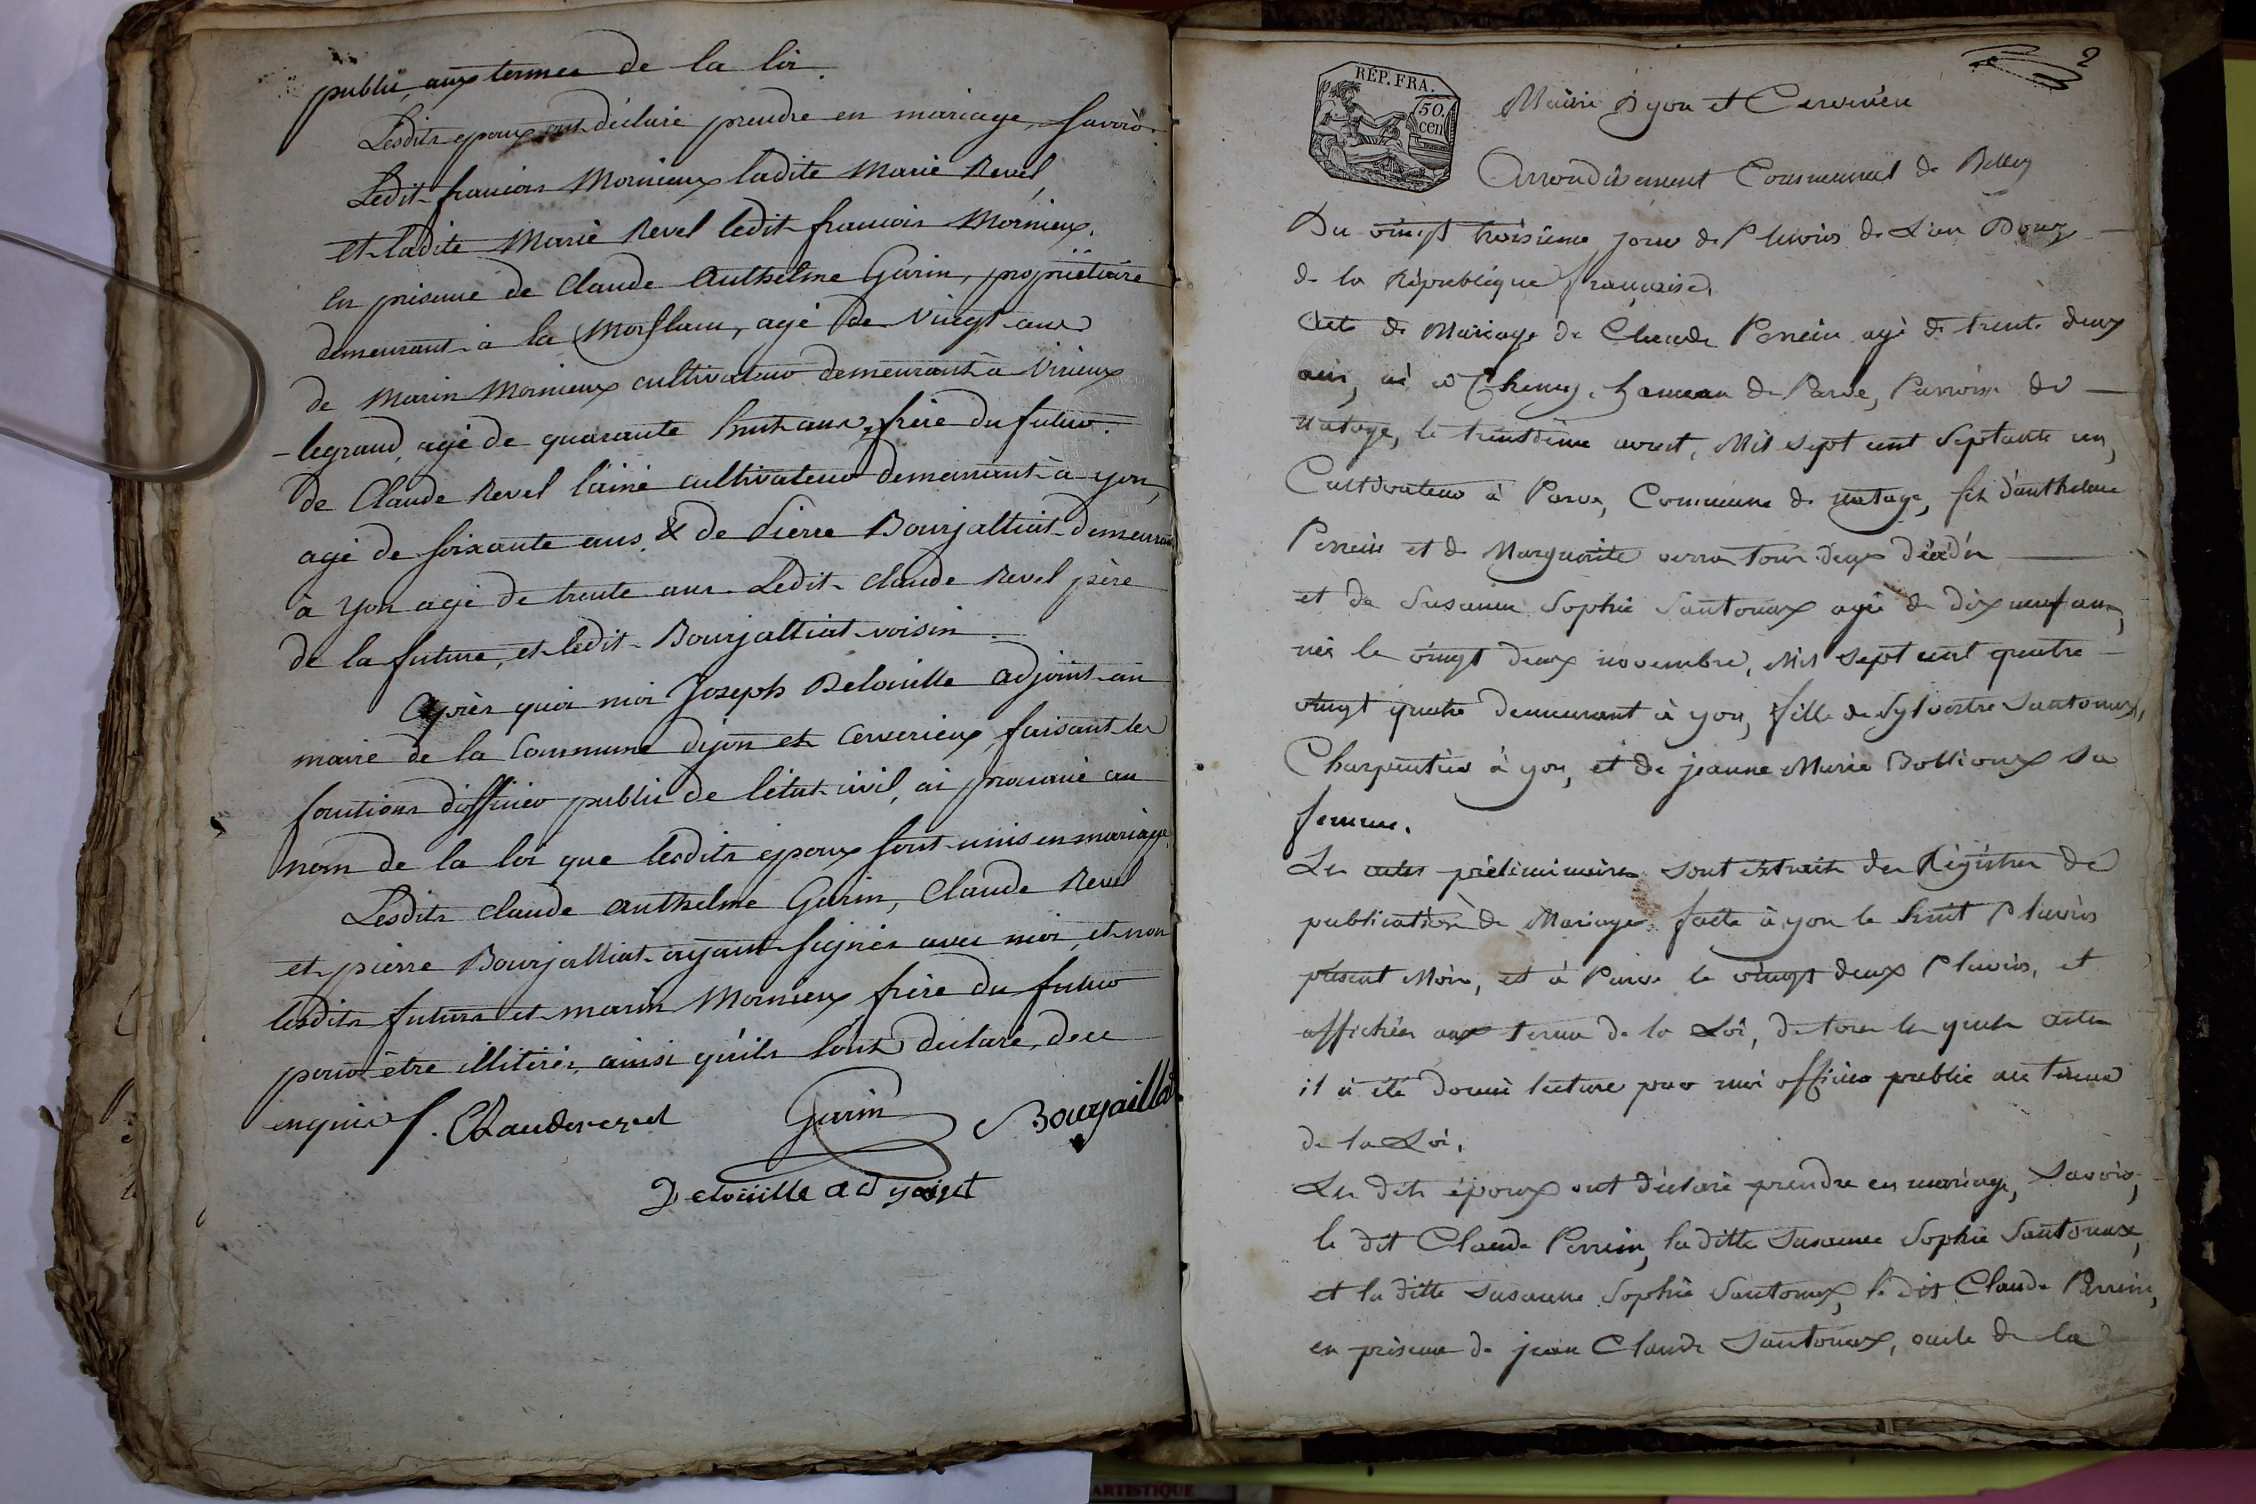 public, aux termes de la loi.
Lesdits epoux ont déclaré prendre en mariage, savoir.
Ledit francois Mornieux ladite Marie Revel,
et ladite Marie Revel ledit francois Mornieux.
En présence de Claude Anthelme Garin, propriétaire
demeurant à la Morflam, agé de vingt ans
de Marin Mornieux cultivateur demeurant à Virieux
-legrand, agé de quarante huit ans, frère du futur.
de Claude Revel l'ainé cultivateur demeurant à yon,
agé de soixante ans & de Pierre Bourjalliat demeurant
à Yon agé de trente ans. Ledit Claude Revel père
de la future, et ledit Bourjalliat voisin.
Après quoi moi Joseph Delouille adjoint au
maire de la Commune d'yon et Cerverieux, faisant les
fonctions d'officier public de l'état civil, ai prononcé au
nom de la loi que lesdits époux sont unis en mariage.
Lesdits claude anthelme Garin, Claude Revel
et pierre Bourjalliat ayant signés avec moi, et non
lesdits futurs et marin Mornieux frère du futur
pour être illitérés, ainsi qu'ils l'ont déclaré, de ce
enquis f. Claude revel Garin Bourjaillat
Delouille adjoint
2
RÉP. FRA.
50.
cen
Mairie d'yon et Cerverieu
Arrondissement Communal de Belley
Du vingt troisieme jour de Pluvios de L'an Douze
de la République française.
Acte de Mariage de Claude Perrein agé de trente deux
ans, né à Chemy, hameau de Parve, Parroisse de
Natage, le trentième aoust, Mil sept cent Septante un,
Cultivateur à Parve, Commune de natage, fils d'anthelme
Perrein et de Marguerite serra tous deux décédés
et de Susanne Sophie Santonax agée de dix neuf ans,
née le vingt deux novembre, Mil sept cent quatre
vingt quatre demeurant à yon, fille de Sylvestre Santonax,
Charpentier à yon, et de jeanne Marie Bollioux sa
femme.
Les actes préliminaires sont extraits des Régistres de
publication de Mariages faite à yon le huit Pluvios
présent Mois, et à Parve le vingt deux Pluvios, et
affichés aux terme de la Loi, de tous les quels actes
il a été donné lecture par moi officier public au terme
de la Loi.
Les dits époux ont déclaré prendre en mariage, Savoir,
le dit Claude Perrein, la ditte Susanne Sophie Santonax,
et la ditte Susanne Sophie Santonax, le dit Claude Perrein,
en présence de jean Claude Santonax, oncle de la
ARTISTIQUE